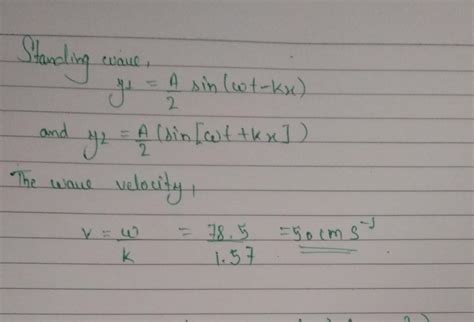 Standing wave,
y1 = A/2 sin(ωt-kx)
and y2 = A/2 (sin[ωt+kx])
The wave velocity,
v = ω/k = 78.5/1.57 = 50 cm s⁻¹